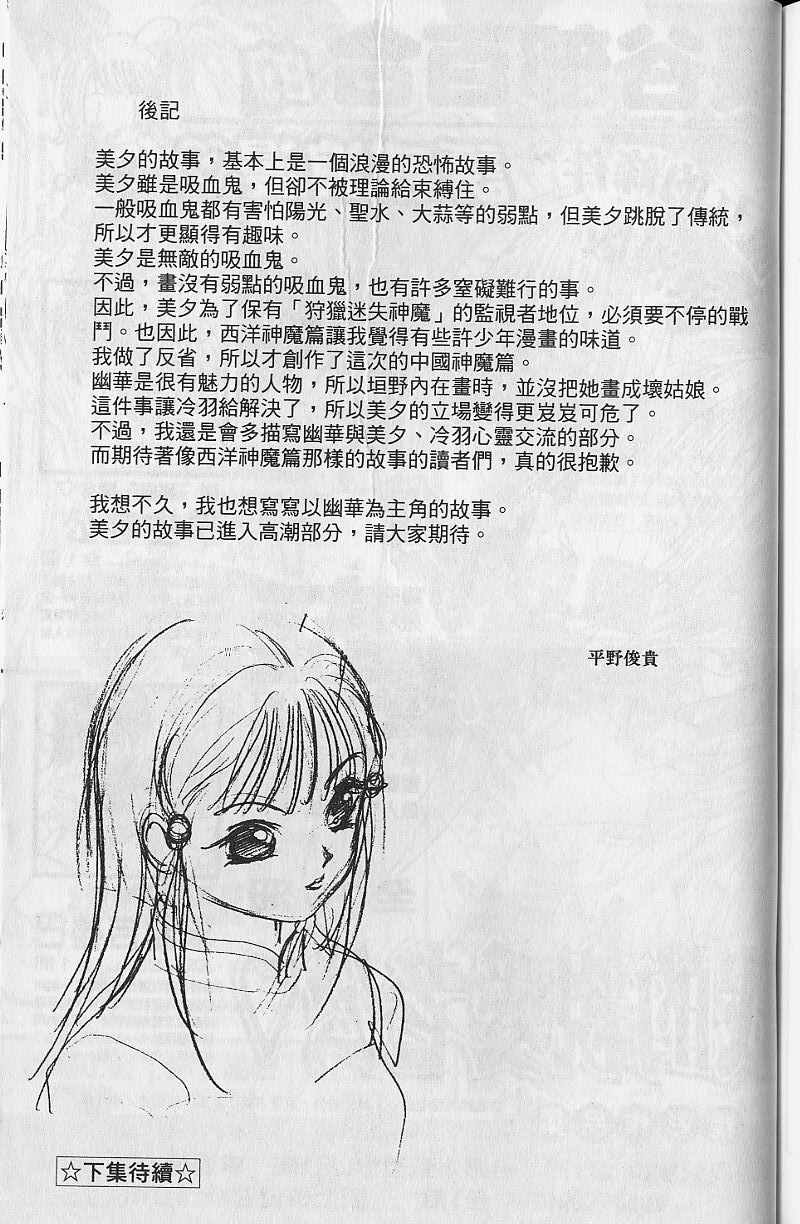 後記
美夕的故事，基本上是一個浪漫的恐怖故事。
美夕雖是吸血鬼，但卻不被理論給束縛住。
一般吸血鬼都有害怕陽光、聖水、大蒜等的弱點，但美夕跳脫了傳統，
所以才更顯得有趣味。
美夕是無敵的吸血鬼。
不過，畫沒有弱點的吸血鬼，也有許多窒礙難行的事。
因此，美夕為了保有「狩獵迷失神魔」的監視者地位，必須要不停的戰
鬥。也因此，西洋神魔篇讓我覺得有些許少年漫畫的味道。
我做了反省，所以才創作了這次的中國神魔篇。
幽華是很有魅力的人物，所以垣野內在畫時，並沒把她畫成壞姑娘。
這件事讓冷羽給解決了，所以美夕的立場變得更岌岌可危了。
不過，我還是會多描寫幽華與美夕、冷羽心靈交流的部分。
而期待著像西洋神魔篇那樣的故事的讀者們，真的很抱歉。
我想不久，我也想寫寫以幽華為主角的故事。
美夕的故事已進入高潮部分，請大家期待。
平野俊貴
☆下集待續☆